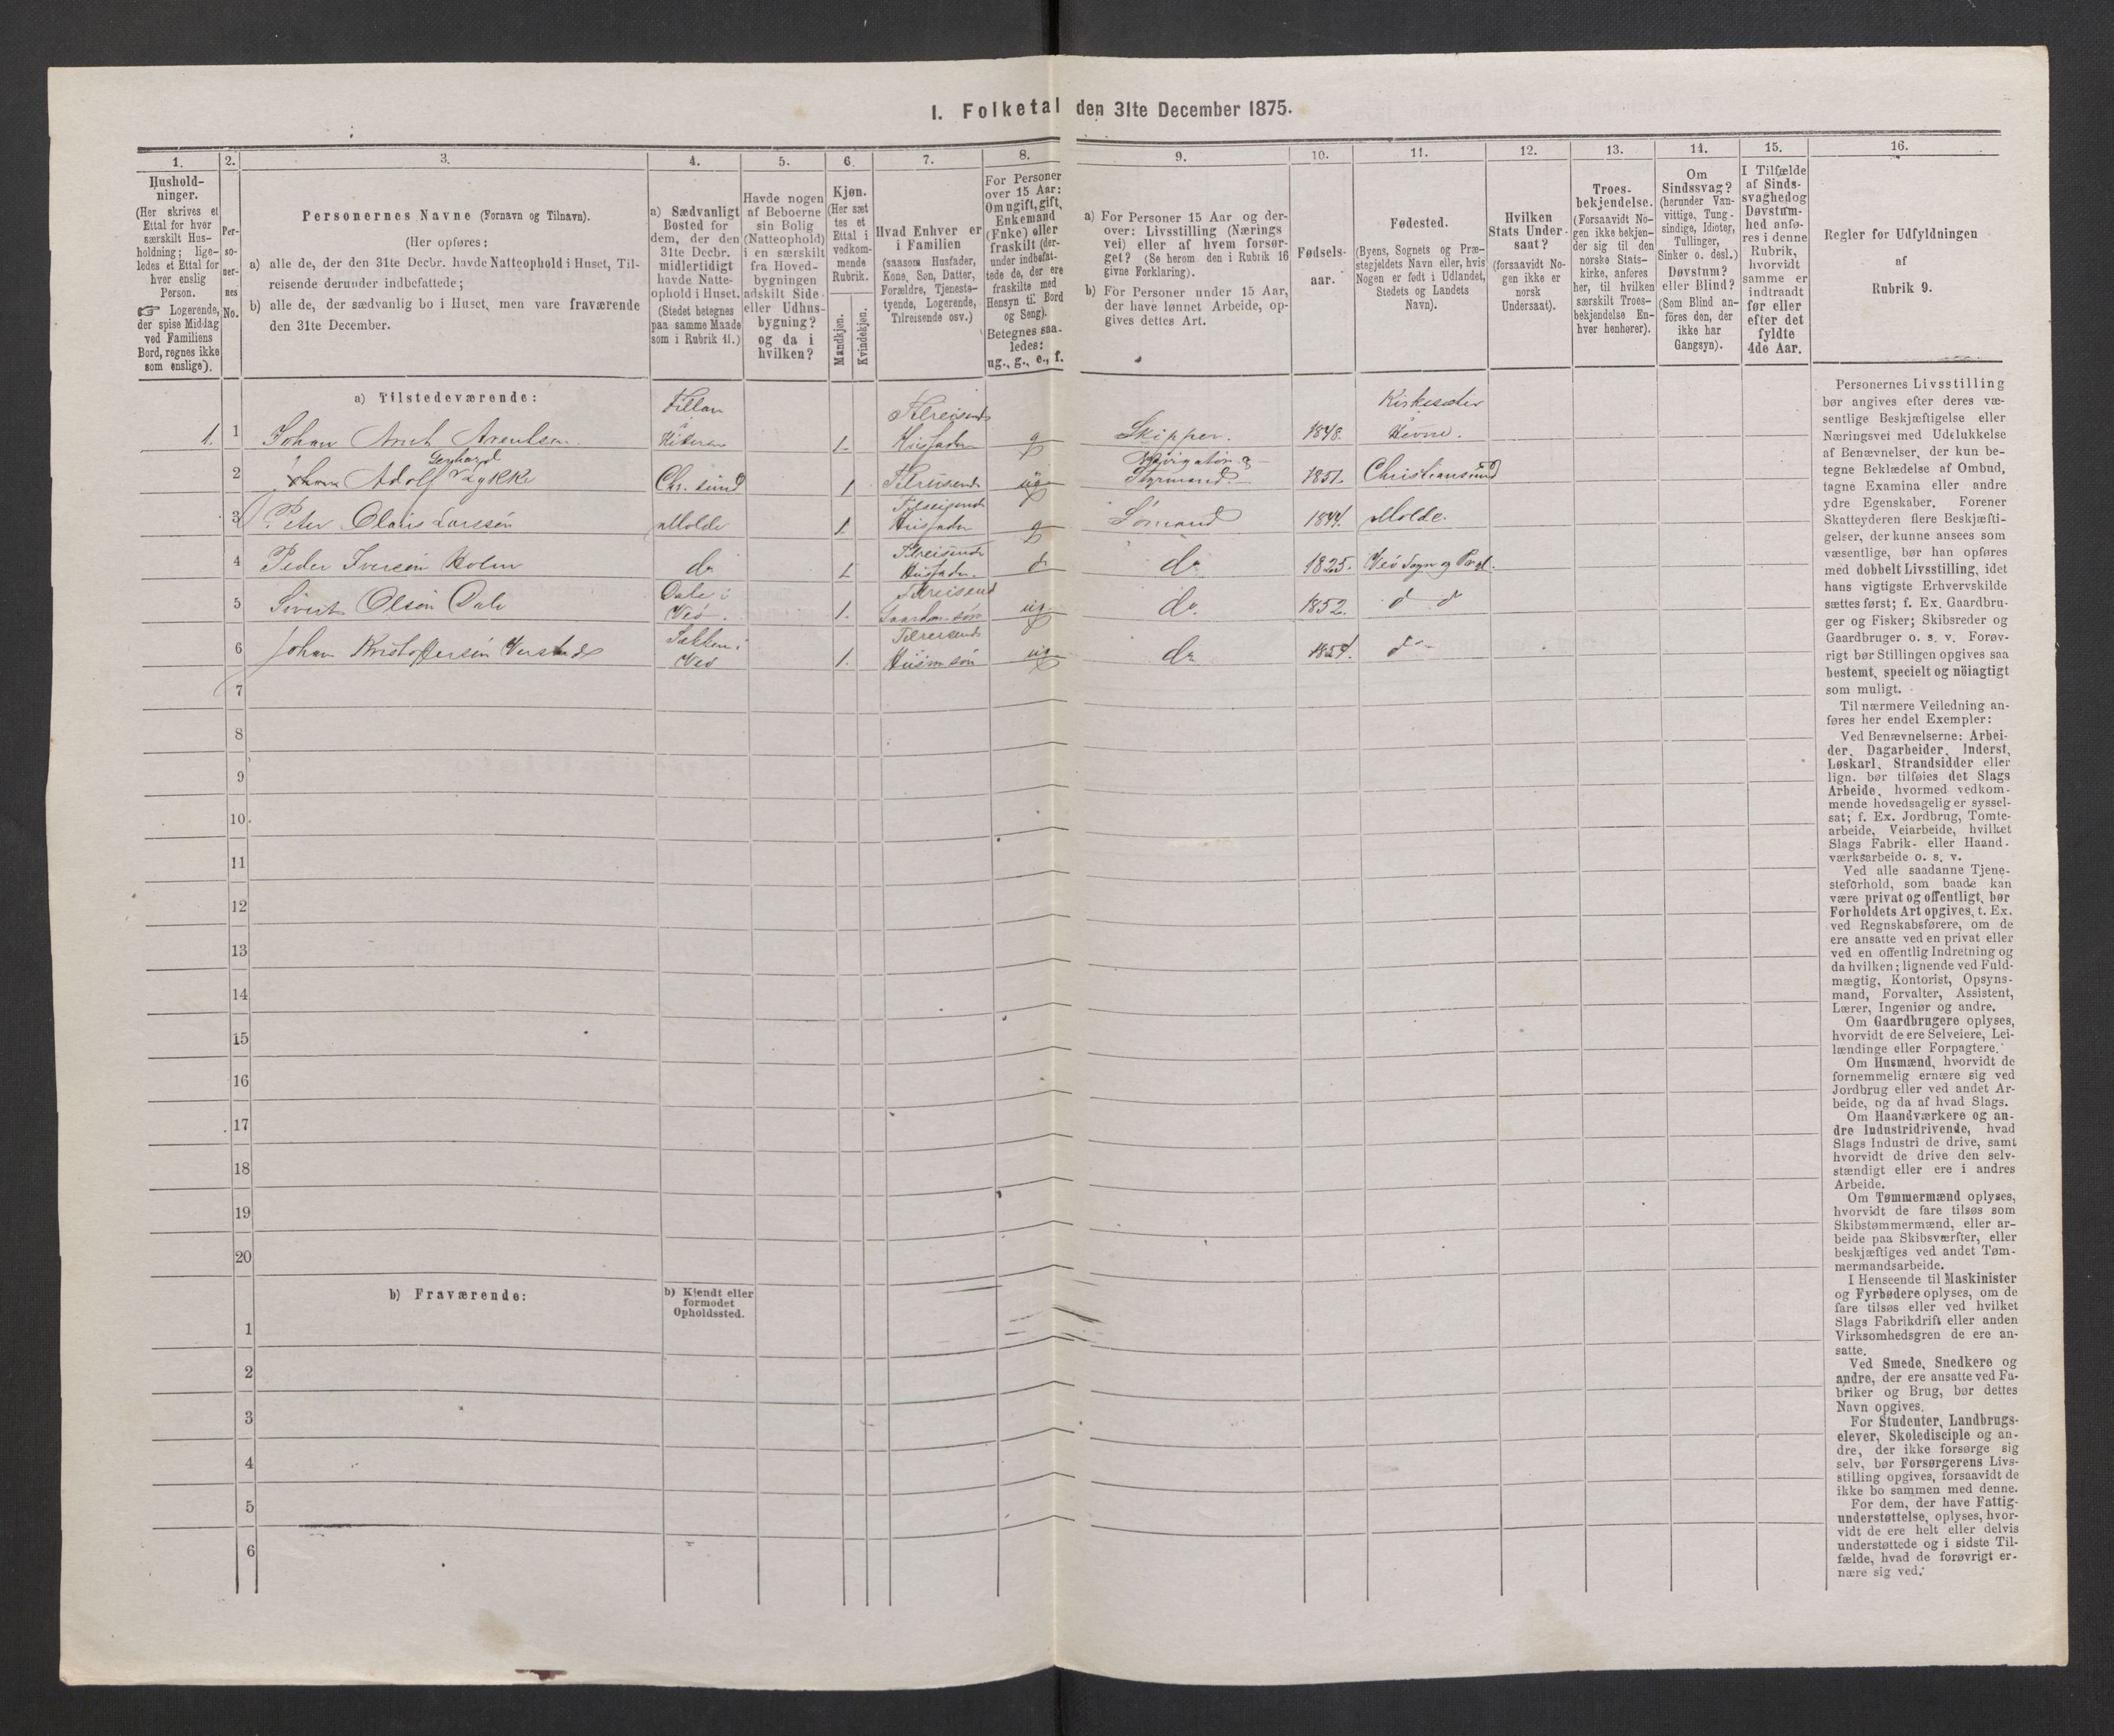 I. Folketal den 31te December 1875.
1. 2. 3. 4. 5. 6. 7. 8. 9. 10. 11. 12. 13. 14. 15. 16.
Hushold-
ninger.
(Her skrives et
Ettal for hver
særskilt Hus-
holdning; lige-
ledes et Ettal for
hver enslig
Person.
☞ Logerende,
der spise Middag
ved Familiens
Bord, regnes ikke
som enslige).
Per-
so-
ner-
nes
No.
Personernes Navne (Fornavn og Tilnavn).
(Her opføres:
a) alle de, der den 31te Decbr. havde Natteophold i Huset, Til-
reisende derunder indbefattede;
b) alle de, der sædvanlig bo i Huset, men vare fraværende
den 31te December.
a) Sædvanligt
Bosted for
dem, der den
31te Decbr.
midlertidigt
havde Natte-
ophold i Huset.
(Stedet betegnes
paa samme Maade
som i Rubrik 11.)
Havde nogen
af Beboerne
sin Bolig
(Natteophold)
i en særskilt
fra Hoved-
bygningen
adskilt Side-
eller Udhus-
bygning?
og da i
hvilken?
Kjøn.
(Her sæt
tes et
Ettal i
vedkom-
mende
Rubrik.
Mandkjøn.
Kvindekjøn.
Hvad Enhver er
i Familien
(saasom Husfader,
Kone, Søn, Datter,
Forældre, Tjeneste-
tyende, Logerende,
Tilreisende osv.)
For Personer
over 15 Aar:
Om ugift, gift,
Enkemand
(Enke) eller
fraskilt (der-
under indbefat-
tede de, der ere
fraskilte med
Hensyn til Bord
og Seng).
Betegnes saa-
ledes:
ug., g., e., f.
a) For Personer 15 Aar og der-
over: Livsstilling (Nærings
vei) eller af hvem forsør-
get? (Se herom den i Rubrik 16
givne Forklaring).
b) For Personer under 15 Aar,
der have lønnet Arbeide, op-
gives dettes Art.
Fødsels-
aar.
Fødested.
(Byens, Sognets og Præ-
stegjeldets Navn eller, hvis
Nogen er født i Udlandet,
Stedets og Landets
Navn).
Hvilken
Stats Under-
saat?
(forsaavidt No-
gen ikke er
norsk
Undersaat).
Troes-
bekjendelse.
(Forsaavidt No-
gen ikke bekjen-
der sig til den
norske Stats-
kirke, anføres
her, til hvilken
særskilt Troes-
bekjendelse En-
hver henhører).
Om
Sindssvag?
(herunder Van-
vittige, Tung-
sindige, Idioter,
Tullinger,
Sinker o. desl.)
Døvstum?
eller Blind?
(Som Blind an-
føres den, der
ikke har
Gangsyn).
I Tilfælde
af Sinds-
svaghed og
Døvstum-
hed anfø-
res i denne
Rubrik,
hvorvidt
samme er
indtraadt
før eller
efter det
fyldte
4de Aar.
Regler for Udfyldningen
af
Rubrik 9.
a) Tilstedeværende:
Fillan Tilreisende Kirkesæter
1. 1 Johan Arnt Arentsen. Hitteren 1. Husfader g Skipper. 1848. Hevne.
Gerhard Navigatør og
2 Adolf Lykke Chr. sund 1 Tilreisende ug Styrmand. 1851. Christiansund
Tilreisende
3 Peter Olaus Larssen Molde 1. Husfader g Sømand 1844. Molde.
Tilreisende
4 Peder Iversen Holm do 1 Husfader. do do 1825. Veø Sogn og Pr.gl.
Dale i Tilreisende
5 Sivert Olsen Dale Veø. 1. Gaardm. søn ug do. 1852. d d
Sekken i Tilreisende
6 Johan Kristoffersen Veø 1. Husm. søn ug do 1854. do
7
8
9
10
11
12
13
14
15
16
17
18
19
20
b) Fraværende:
b) Kjendt eller
formodet
Opholdssted.
1
2
3
4
5
6
Personernes Livsstilling
bør angives efter deres væ-
sentlige Beskjæftigelse eller
Næringsvei med Udelukkelse
af Benævnelser, der kun be-
tegne Beklædelse af Ombud,
tagne Examina eller andre
ydre Egenskaber. Forener
Skatteyderen flere Beskjæfti-
gelser, der kunne ansees som
væsentlige, bør han opføres
med dobbelt Livsstilling, idet
hans vigtigste Erhvervskilde
sættes først; f. Ex. Gaardbru-
ger og Fisker; Skibsreder og
Gaardbruger o. s. v. Forøv-
rigt bør Stillingen opgives saa
bestemt, specielt og nöiagtigt
som muligt.
Til nærmere Veiledning an-
føres her endel Exempler:
Ved Benævnelserne: Arbei-
der, Dagarbeider, Inderst,
Løskarl, Strandsidder eller
lign. bør tilføies det Slags
Arbeide, hvormed vedkom-
mende hovedsagelig er syssel-
sat; f. Ex. Jordbrug, Tomte-
arbeide, Veiarbeide, hvilket
Slags Fabrik- eller Haand-
værksarbeide o. s. v.
Ved alle saadanne Tjene-
steforhold, som baade kan
være privat og offentligt, bør
Forholdets Art opgives, t. Ex.
ved Regnskabsførere, om de
ere ansatte ved en privat eller
ved en offentlig Indretning og
da hvilken; lignende ved Fuld-
mægtig, Kontorist, Opsyns-
mand, Forvalter, Assistent,
Lærer, Ingeniør og andre.
Om Gaardbrugere oplyses,
hvorvidt de ere Selveiere, Lei-
lændinge eller Forpagtere.
Om Husmænd, hvorvidt de
fornemmelig ernære sig ved
Jordbrug eller ved andet Ar-
beide, og da af hvad Slags.
Om Haandværkere og an-
dre Industridrivende, hvad
Slags Industri de drive, samt
hvorvidt de drive den selv-
stændigt eller ere i andres
Arbeide.
Om Tømmermænd oplyses,
hvorvidt de fare tilsøs som
Skibstømmermænd, eller ar-
beide paa Skibsværfter, eller
beskjæftiges ved andet Tøm-
mermandsarbeide.
I Henseende til Maskinister
og Fyrbødere oplyses, om de
fare tilsøs eller ved hvilket
Slags Fabrikdrift eller anden
Virksomhedsgren de ere an-
satte.
Ved Smede, Snedkere og
andre, der ere ansatte ved Fa-
briker og Brug, bør dettes
Navn opgives.
For Studenter, Landbrugs-
elever, Skoledisciple og an-
dre, der ikke forsørge sig
selv, bør Forsørgerens Livs-
stilling opgives, forsaavidt de
ikke bo sammen med denne.
For dem, der have Fattig-
understøttelse, oplyses, hvor-
vidt de ere helt eller delvis
understøttede og i sidste Til-
fælde, hvad de forøvrigt er-
nære sig ved.